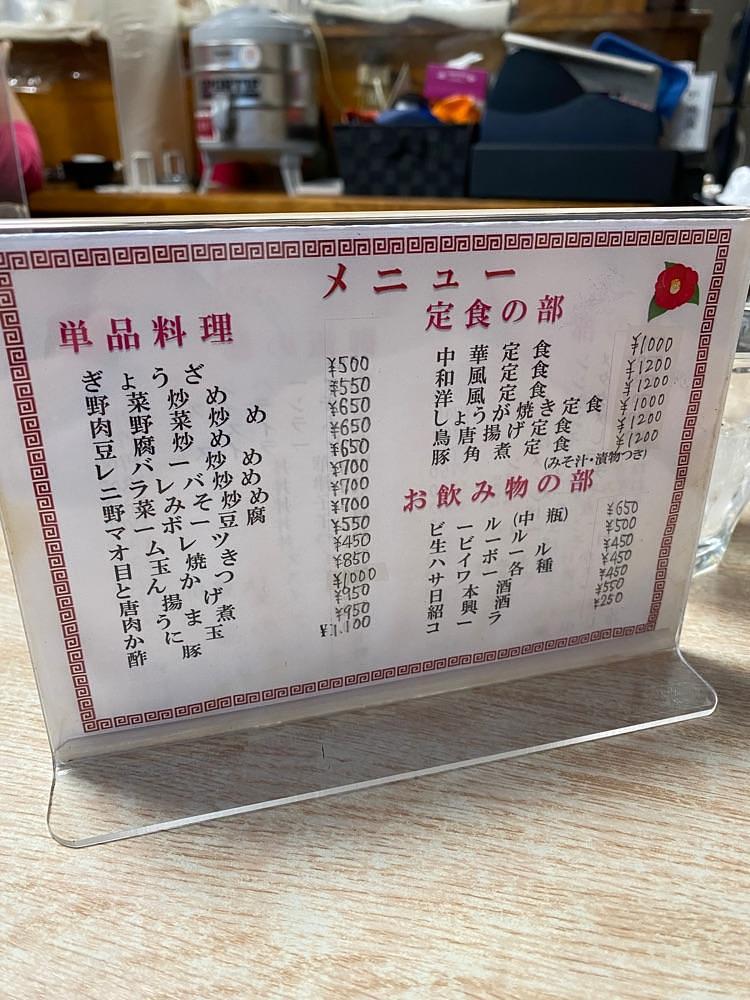 メニュー
単品料理
ぎょうざ ¥500
野菜炒め ¥550
肉野菜炒め ¥650
豆腐炒め ¥650
レバー炒め ¥650
ニラレバ炒め ¥700
野菜みそ炒め ¥700
マーボー豆腐 ¥700
オムレツ ¥550
目玉焼き ¥450
とんかつ ¥850
唐揚げ ¥1000
肉うま煮 ¥950
かに玉 ¥950
酢豚 ¥1,100
定食の部
中華定食 ¥1000
和風定食 ¥1200
洋風定食 ¥1200
しょうが焼き定食 ¥1000
鳥唐揚げ定食 ¥1200
豚角煮定食 ¥1200
(みそ汁・漬物つき)
お飲み物の部
ビール(中瓶) ¥650
生ビール ¥500
ハイボール ¥450
サワー各種 ¥450
日本酒 ¥450
紹興酒 ¥550
コーラ ¥250